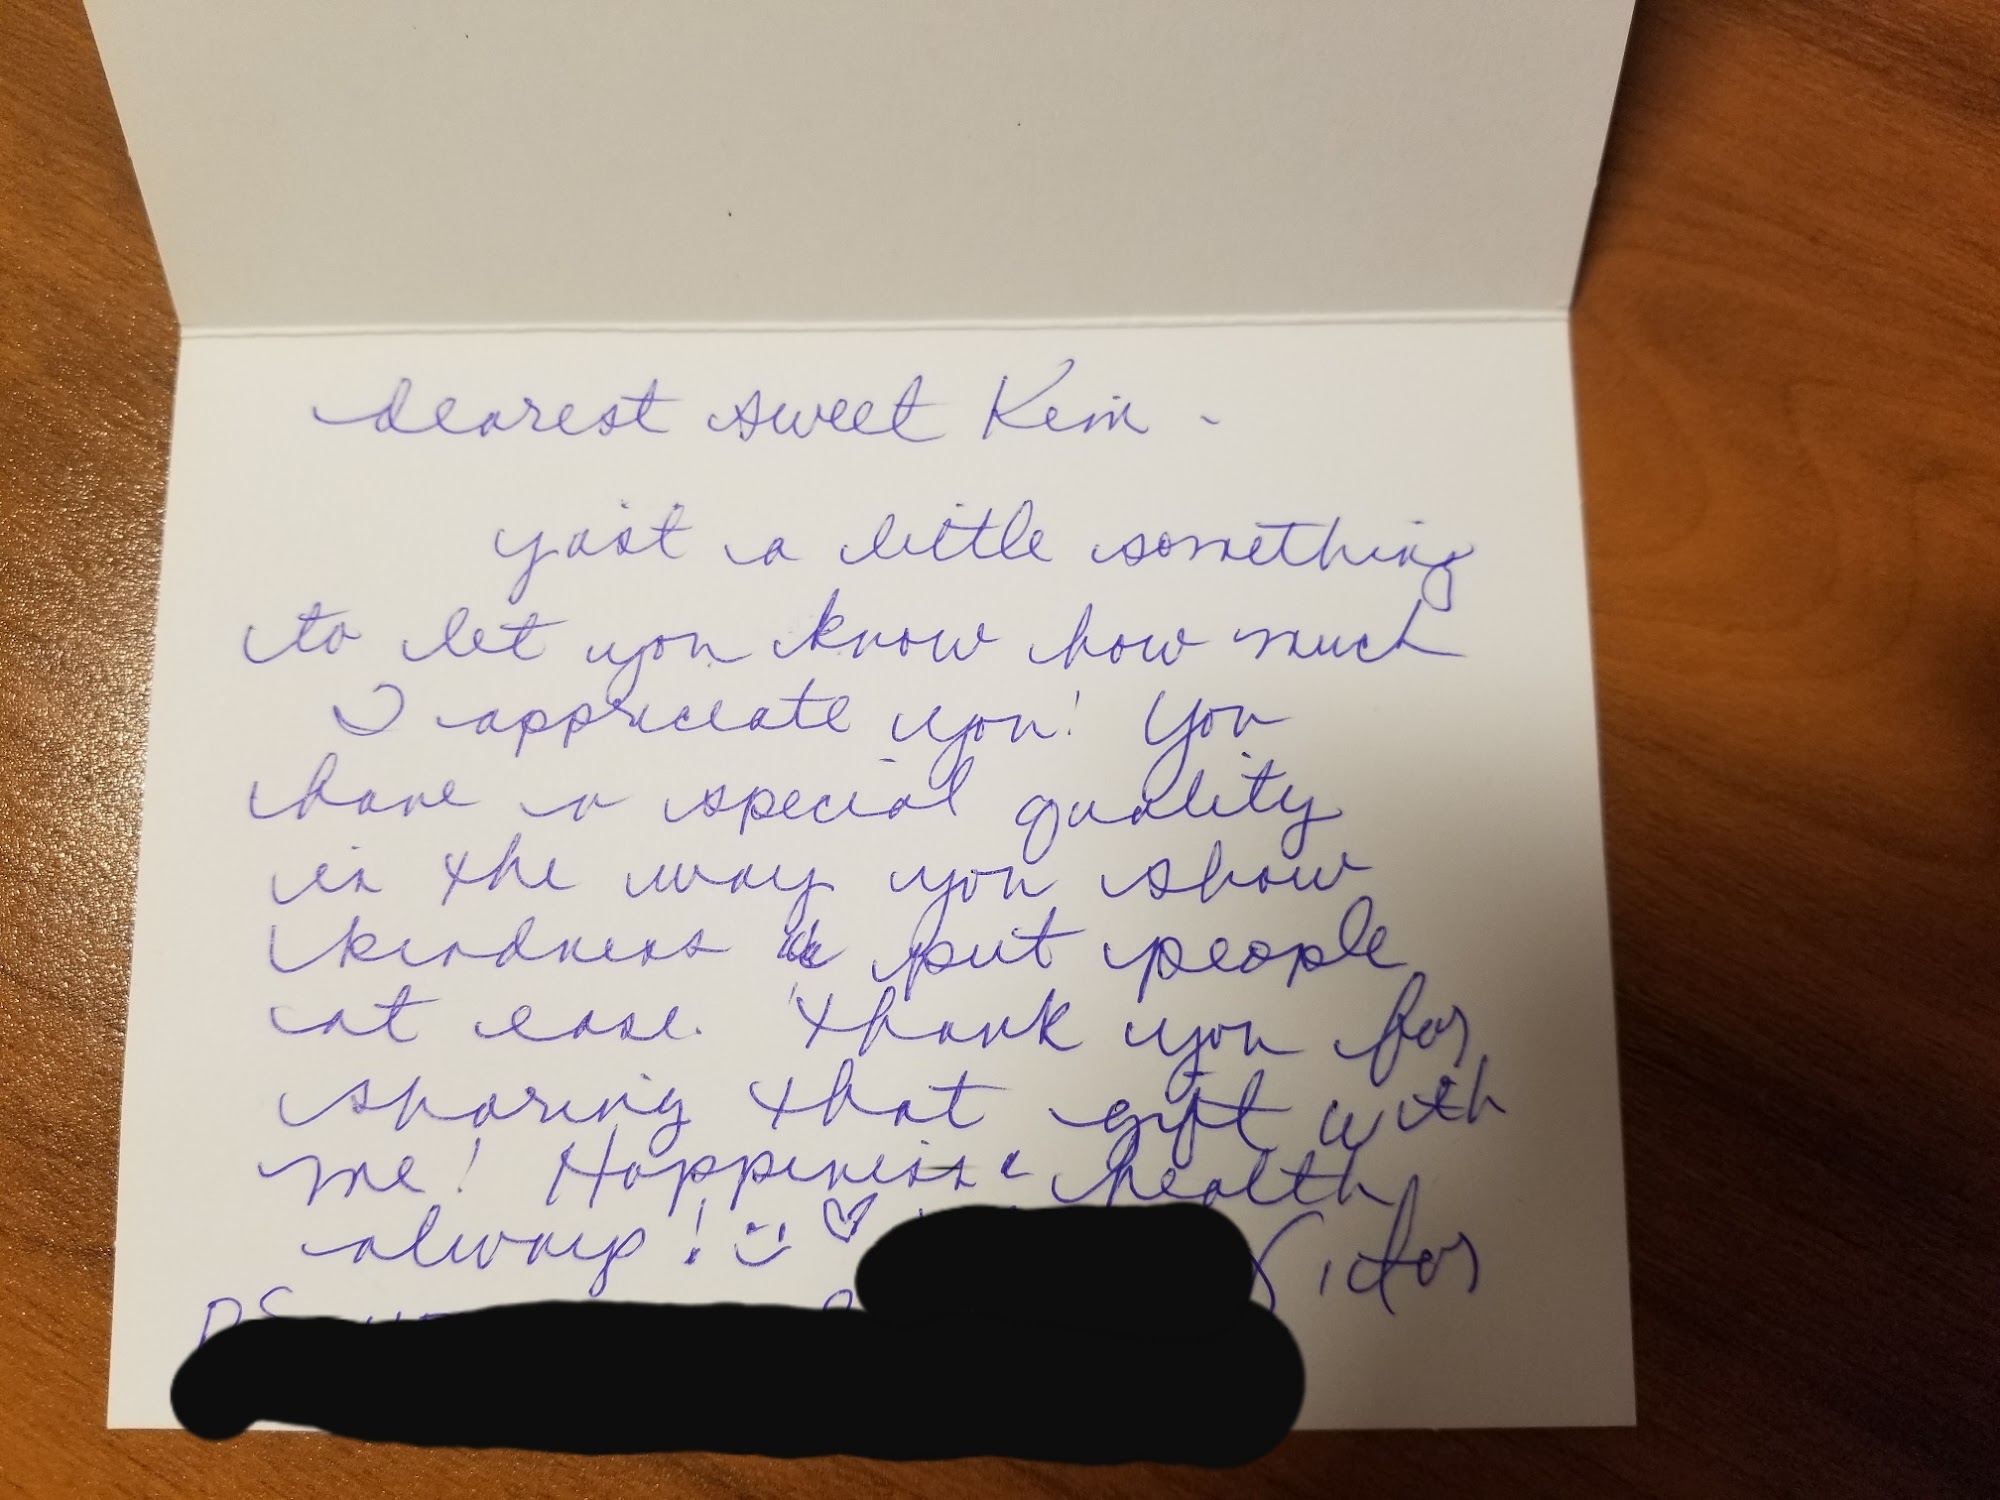 dearest sweet Kim -
just a little something
to let you know how much
I appreciate you! You
have a special quality
in the way you show
kindness & put people
at ease. Thank you for
sharing that gift with
me! Happiness & health
always! :) ♡
Victor
PS